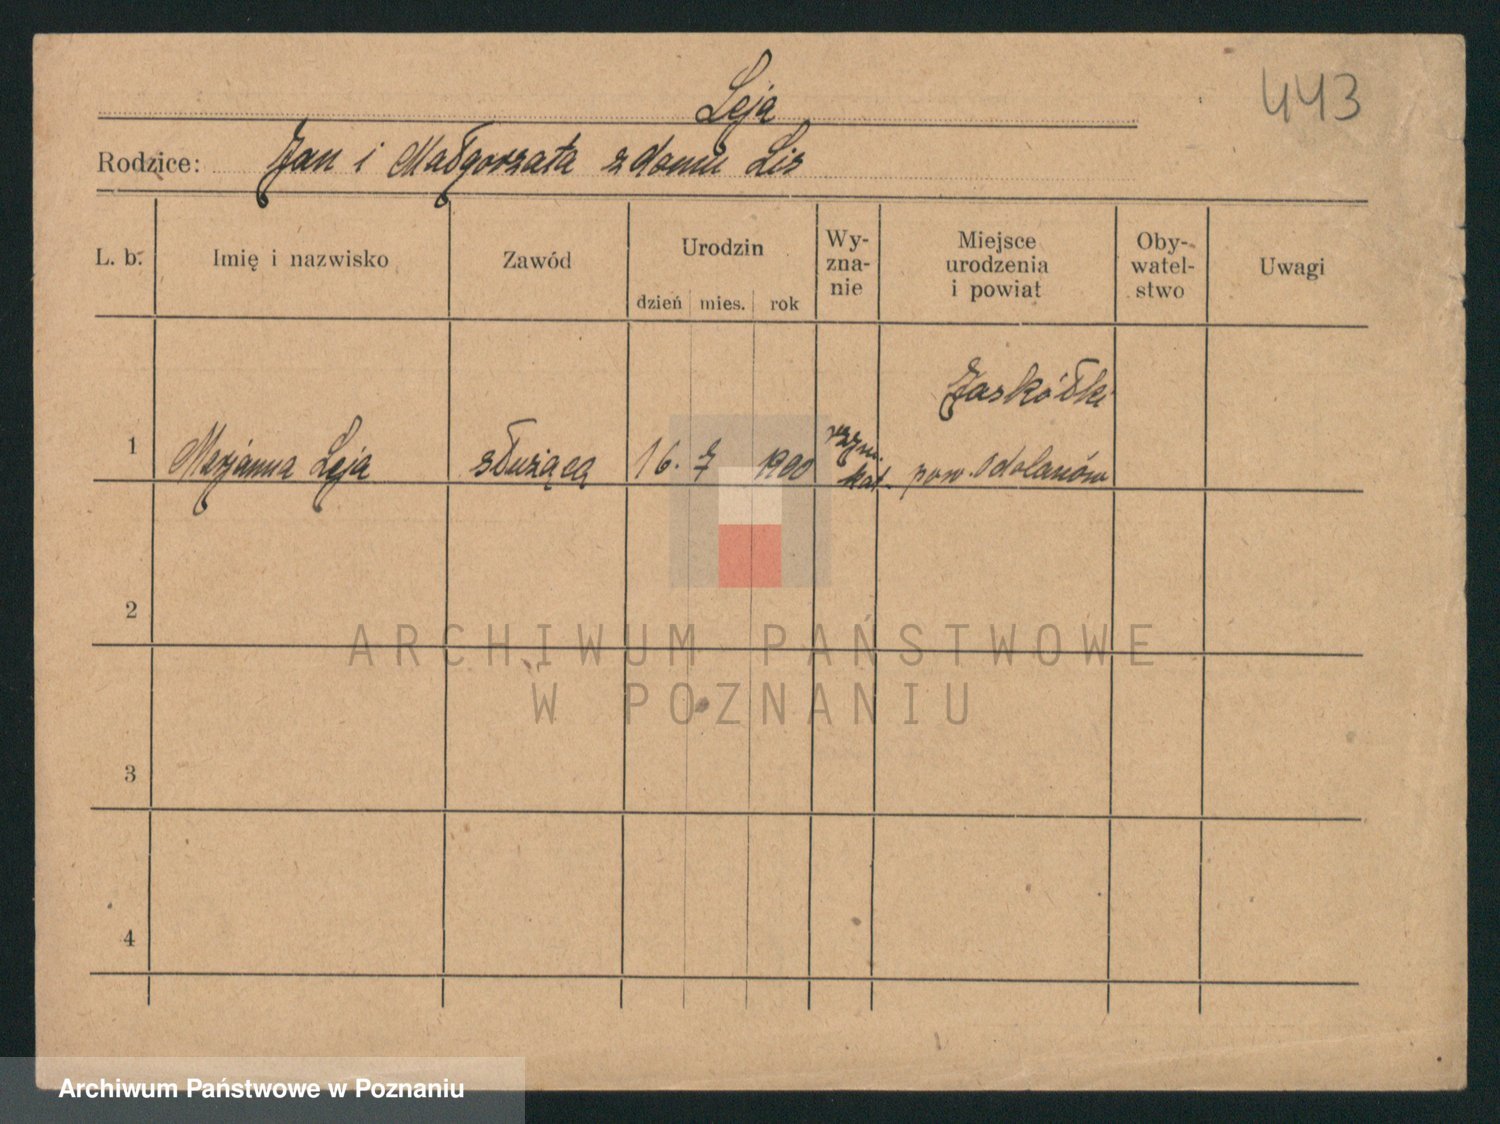 443
Leja
Rodzice: Jan i Małgorzata z domu Lis
L. b. Imię i nazwisko Zawód Urodzin dzień mies. rok Wy-zna-nie Miejsce urodzenia i powiat Oby-watel-stwo Uwagi
Jaskółki
1 Marjanna Leja służącą 16. 7 1900 rzym. kat. pow. Odolanów
2
3
4
ARCHIWUM PAŃSTWOWE
W POZNANIU
Archiwum Państwowe w Poznaniu